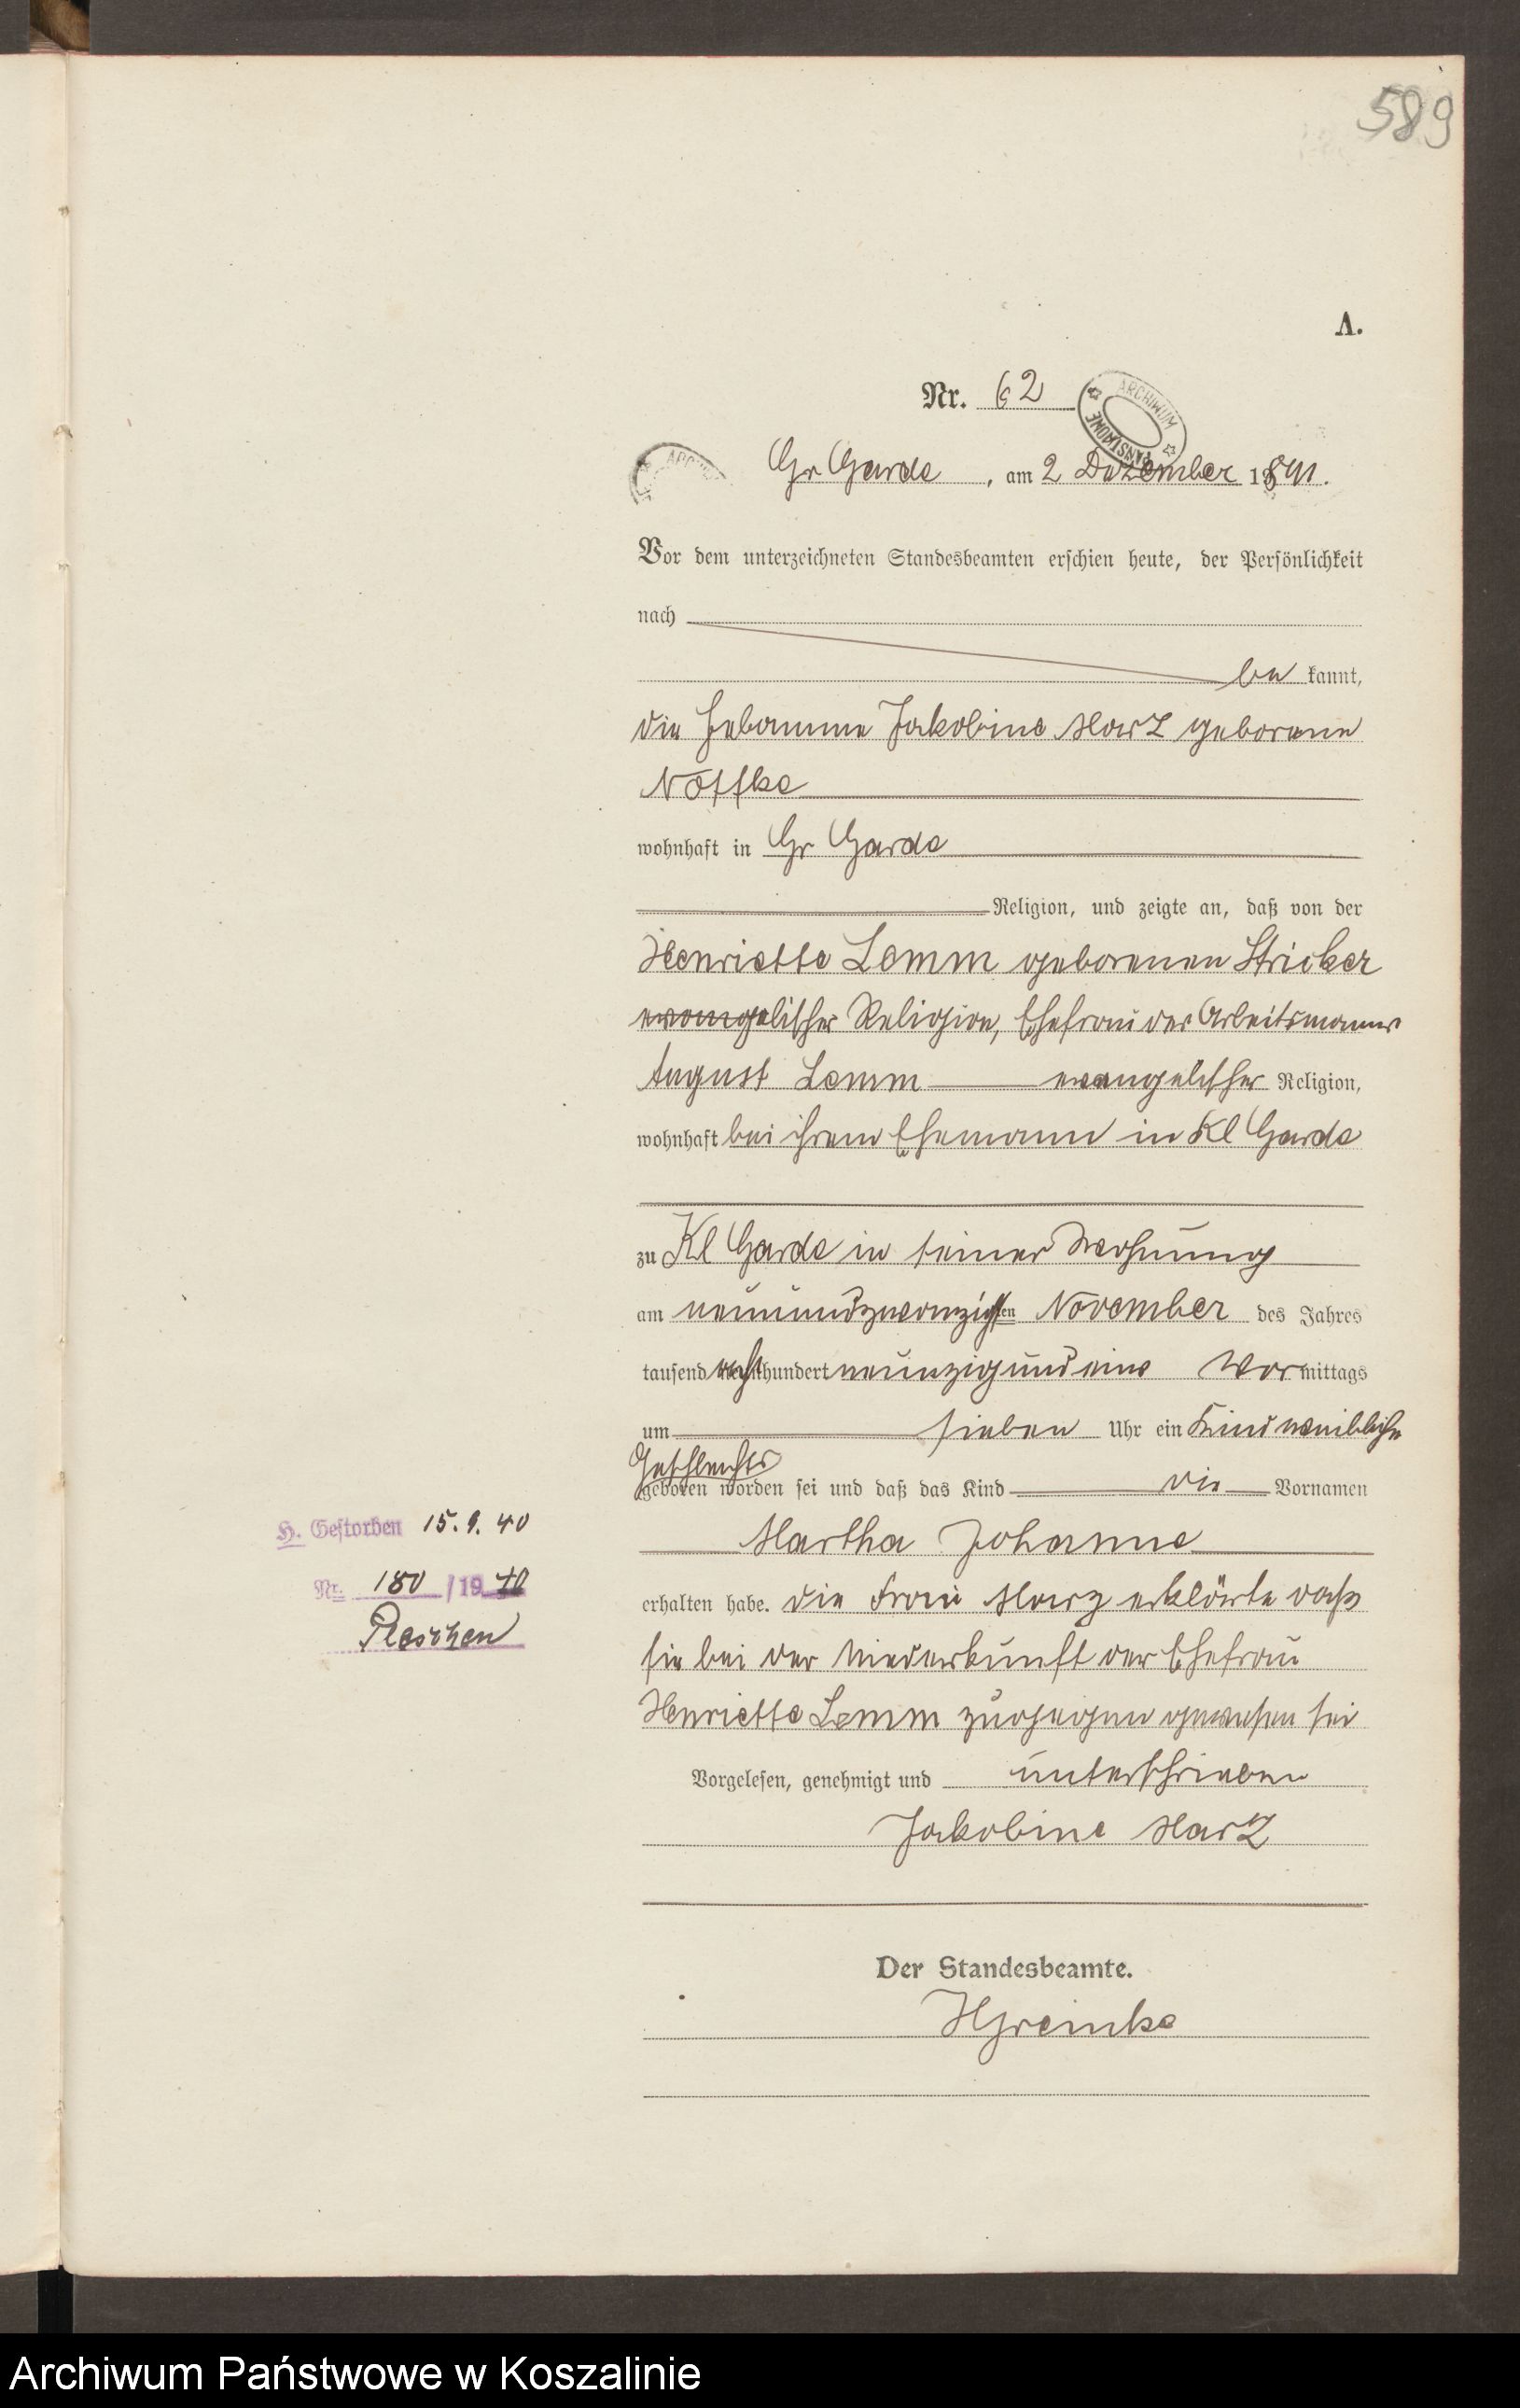 589
A.
Nr. 62
ARCHIWUM PAŃSTWOWE
Gr Garde, am 2 Dezember 1891.
Vor dem unterzeichneten Standesbeamten erschien heute, der Persönlichkeit
nach
be kannt,
die Hebamme Jakobine Marz geborene
Nöffke
wohnhaft in Gr Garde
Religion, und zeigte an, daß von der
Henriette Lemm geborenen Stricker
evangelischer Religion, Ehefrau des Arbeitsmannes
August Lemm evangelischer Religion,
wohnhaft bei ihrem Ehemann in Kl Garde
zu Kl Garde in seiner Wohnung
am neunundzwanzigsten November des Jahres
tausend achthundert neunzig und eins Vormittags
um sieben Uhr ein Kind weiblichen
Geschlechts
geboren worden sei und daß das Kind die Vornamen
H. Gestorben 15.9.40
Martha Johanne
Nr. 180 /1940
erhalten habe. Die Frau Marz erklärte daß
sie bei der Niederkunft der Ehefrau
Henriette Lemm zugegen gewesen sei
Vorgelesen, genehmigt und unterschrieben
Jakobine Marz
Der Standesbeamte.
Archiwum Państwowe w Koszalinie